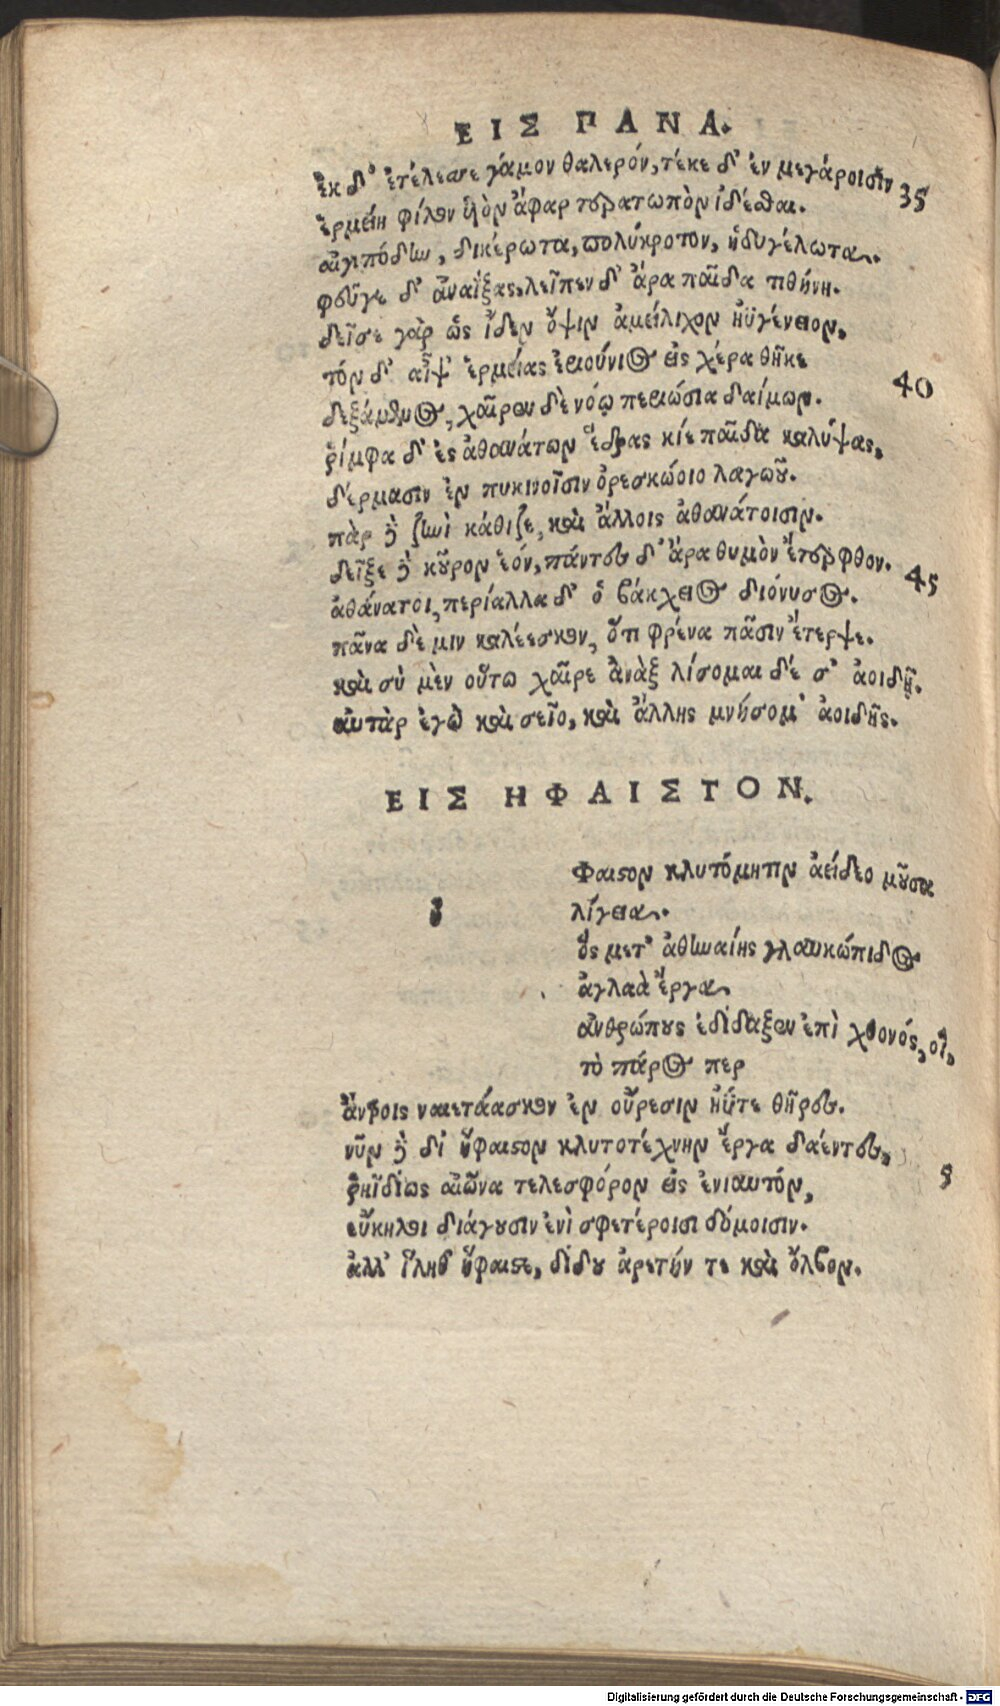 ΕΙΣ ΠΑΝΑ.
ἐκ δ' ἐτέλεσσε γάμον θαλερόν, τέκε δ' ἐν μεγάροισιν 35
ἑρμείῃ φίλον υἱὸν ἄφαρ τερατωπὸν ἰδέσθαι.
αἰγιπόδην, δικέρωτα, πολύκροτον, ἡδυγέλωτα.
φεῦγε δ' ἀναΐξας, λεῖπεν δ' ἄρα παῖδα τιθήνη.
δεῖσε γὰρ ὡς ἴδεν ὄψιν ἀμείλιχον ἠϋγένειον,
τόν δ' αἶψ' ἑρμείας ἐριούνιος εἰς χέρα θῆκε 40
δεξάμενος, χαῖρεν δὲ νόῳ περιώσια δαίμων.
ῥίμφα δ' ἐς ἀθανάτων ἕδρας κίε παῖδα καλύψας,
δέρμασιν ἐν πυκινοῖσιν ὀρεσκώοιο λαγωοῦ.
πὰρ δὲ ζηνὶ κάθιζε, καὶ ἄλλοις ἀθανάτοισιν.
δεῖξε δὲ κοῦρον ἑόν, πάντες δ' ἄρα θυμὸν ἔτερφθον. 45
ἀθάνατοι, περίαλλα δ' ὁ βάκχειος διόνυσος.
πᾶνα δὲ μιν καλέεσκον, ὅτι φρένα πᾶσιν ἔτερψε.
καὶ σὺ μὲν οὕτω χαῖρε ἄναξ λίσομαι δέ σ' ἀοιδῇ.
αὐτὰρ ἐγὼ καὶ σεῖο, καὶ ἄλλης μνήσομ' ἀοιδῆς.
ΕΙΣ ΗΦΑΙΣΤΟΝ.
Φαιστον κλυτόμητιν ἀείδεο μοῦσα
λίγεια.
ὃς μετ' ἀθηναίης γλαυκώπιδος
ἀγλαὰ ἔργα.
ἀνθρώπους ἐδίδαξεν ἐπὶ χθονός, οἳ,
τὸ πάρος περ
ἄντροις ναιετάασκον ἐν οὔρεσιν ἠΰτε θῆρες.
νῦν δὲ δι' ἥφαιστον κλυτοτέχνην ἔργα δαέντες, 5
ῥηϊδίως αἰῶνα τελεσφόρον εἰς ἐνιαυτόν,
εὔκηλοι διάγουσιν ἐνὶ σφετέροισι δόμοισιν.
ἀλλ' ἵληθ' ἥφαιστε, δίδου ἀρετήν τε καὶ ὄλβον.
Digitalisierung gefördert durch die Deutsche Forschungsgemeinschaft - DFG